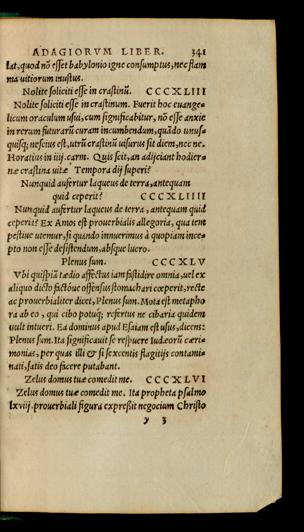 ADAGIORVM LIBER. 341
lat, quod nõ esset babylonio igne consumptus, nec flam
ma uitiorum inustus.
Nolite soliciti esse in crastinũ. CCCXLIII
Nolite soliciti esse in crastinum. Fuerit hoc euange-
licum oraculum usui, cum significabitur, nõ esse anxie
in rerum futurarũ curam incumbendum, quãdo unus-
quisq; nescius est, utrũ crastinũ uisurus sit diem, nec ne.
Horatius in iiij. carm. Quis scit, an adijciant hodier-
næ crastina uitæ Tempora dij superi?
Nunquid aufertur laqueus de terra, antequam
quid ceperit? CCCXLIIII
Nunquid aufertur laqueus de terra, antequam quid
ceperit? Ex Amos est prouerbialis allegoria, qua tem
pestiue utemur, si quando innuerimus à quopiam ince-
pto non esse desistendum, absque lucro.
Plenus sum. CCCXLV
Vbi quispiã tædio affectus iam fastidire omnia, uel ex
aliquo dicto factóue offensus stomachari cœperit, recte
ac prouerbialiter dicet, Plenus sum. Mota est metapho
ra ab eo, qui cibo potuq; refertus ne cibaria quidem
uult intueri. Ea dominus apud Esaiam est usus, dicens:
Plenus sum. Ita significauit se respuere Iudæorũ cæri-
monias, per quas illi & si sexcentis flagitijs contami-
nati, satis deo facere putabant.
Zelus domus tuæ comedit me. CCCXLVI
Zelus domus tuæ comedit me. Ita propheta psalmo
lxviij. prouerbiali figura expreßit negocium Christo
y 3